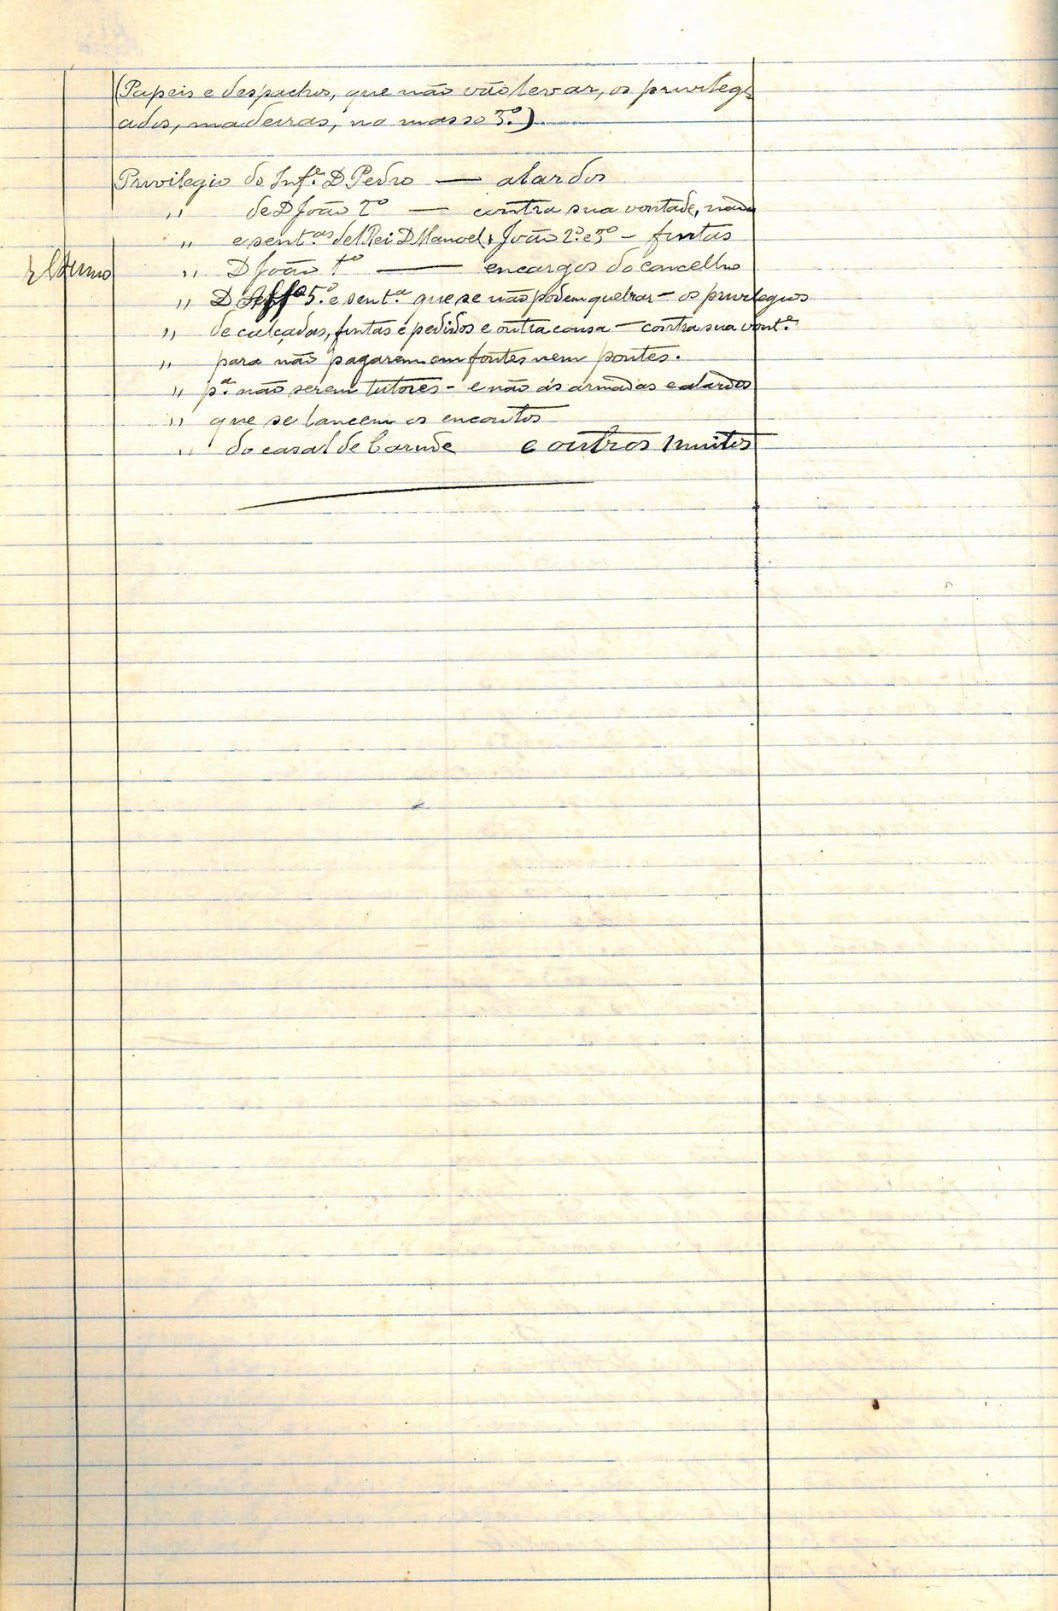 (Papeis e despachos, que não vão levar, os privilegi
ados, madeiras, no masso 3.º)
Privilegio do Inf.e D Pedro — alardos
" de D João 2º — contra sua vontade, nada
" e sent.as del Rei D Manoel, João 2.º e 3º – fintas
" D João 1º — encargos do concelho
" D Aff.º 5.º e sent.a que se não podem quebrar – os privilegios
" de calçadas, fintas e pedidos e outra cousa – contra sua vont.e
" para não pagarem em fontes nem pontes.
" p.a não serem tutores – e não ás armadas e alardos
" que se lancem os encoutos
" do casal de Carude e outros muitos